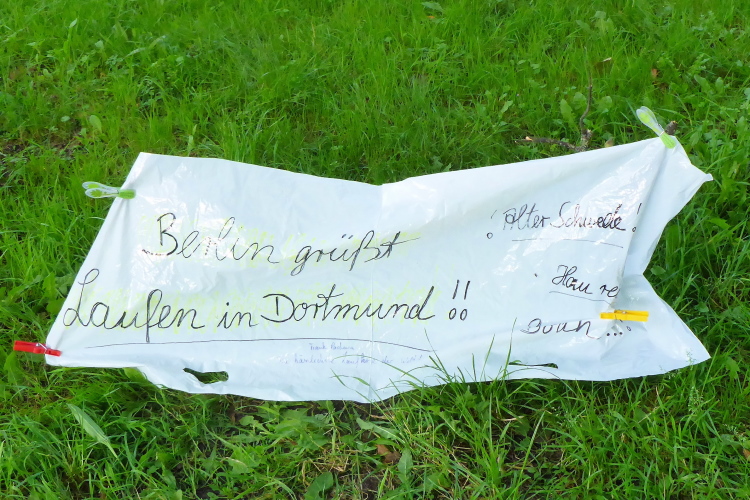 Berlin grüßt
Laufen in Dortmund !!
Alter Schwede !
Hau re